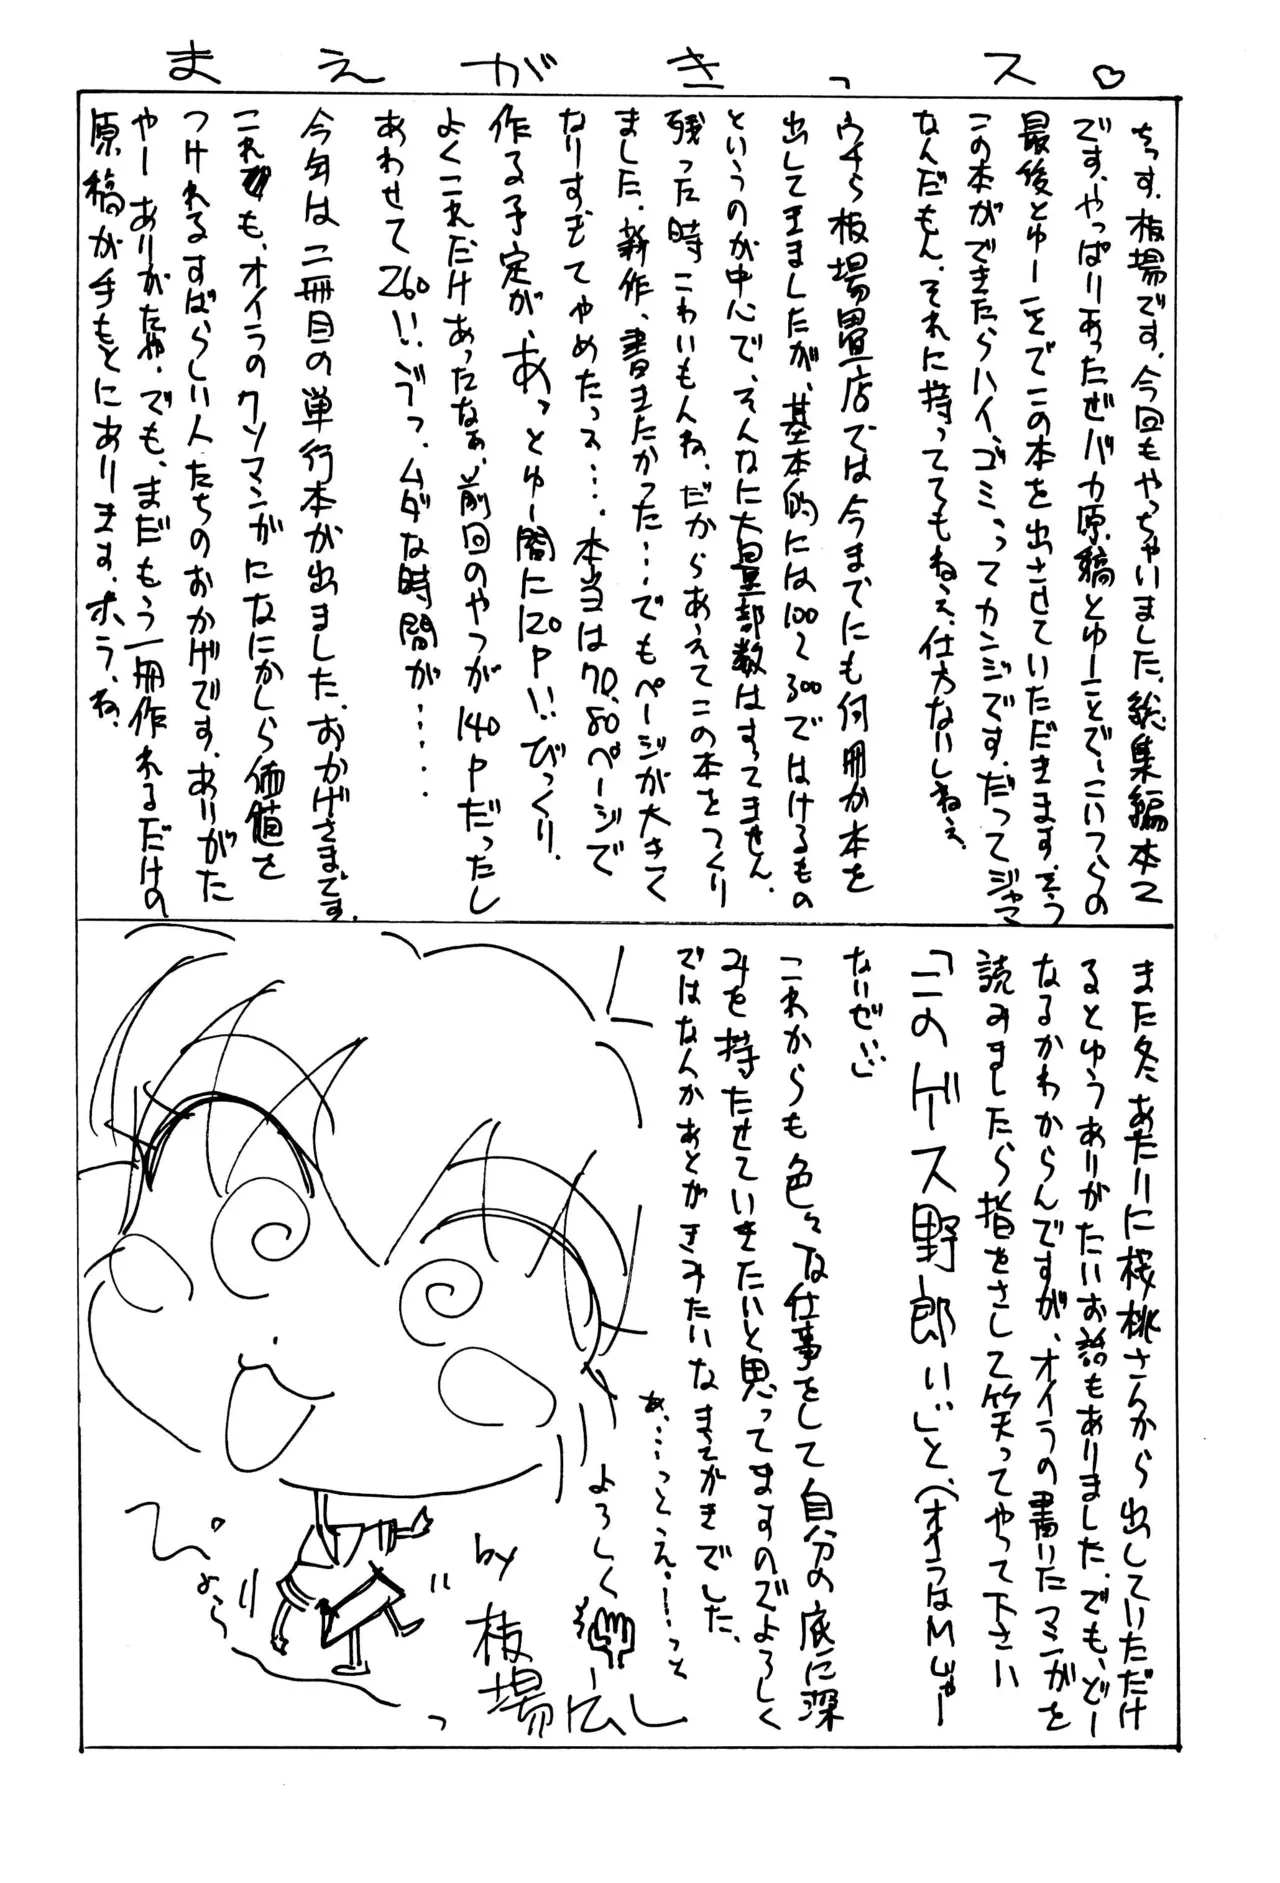 まえがきっス♡
ちっす。板場です。今回もやっちゃいました、総集編本で
です。やっぱりあったぜバカ原稿とゆーことで、こいつらの
最後とゆーことでこの本を出させていただきます。もう
この本ができたらハイ、ゴミ、ってカンジです。だってジャマ
なんだもん。それに持っててもねぇ、仕方ないしねぇ。
ウチら板場畳店では今までにも何冊か本を
出してきましたが、基本的には100〜300ではけるもの
というのが中心で、そんなに大量部数はすってません。
残った時こわいもんね。だからあえてこの本をつくり
ました。新作、書きたかった……でもページが大きく
なりすぎてやめたっス…。本当は70、80ページで
作る予定が、あっとゆー間に120P!!びっくり。
よくこれだけあったなぁ、前回のやつが140Pだったし
あわせて260!!ゔっ、ムダな時間が……
今年は二冊目の単行本が出ました。おかげさまです。
これも、オイラのクソマンガになにかしら価値を
つけれるすばらしい人たちのおかげです。ありがた
やー ありがたや。でも、まだもう一冊作れるだけの
原稿が手もとにあります。ホラ、ね。
また冬あたりに桜桃さんから出していただけ
るとゆうありがたいお話もありました。でも、どー
なるかわからんですが、オイラの書いたマンガを
読みましたら指をさして笑ってやって下さい
「このゲース野郎!!」と、(オイラはMじゃー
ないぜ!!)
これからも色々な仕事をして自分の底に深
みを持たせていきたいと思ってますのでよろしく
ではなんかあとがきみたいなまえがきでした。
あ……っとえ……っと
よろしく
by 板場広し
ぴょこっ